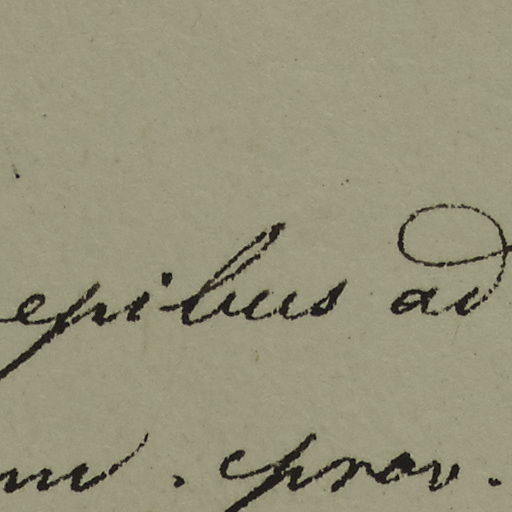 epibus ad
m. prov.